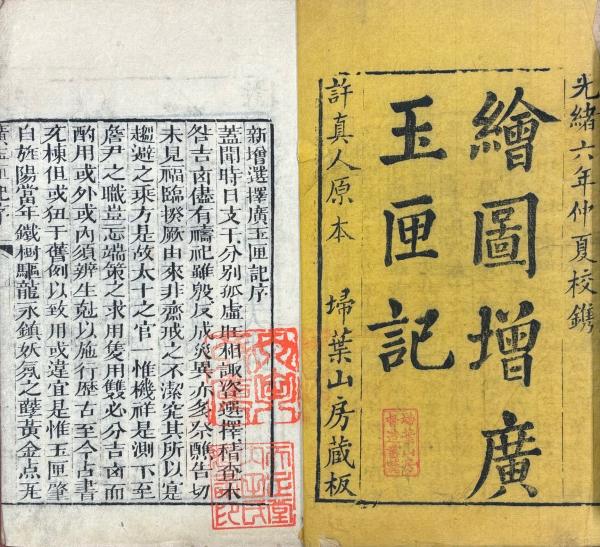 光緒六年仲夏校鐫
繪圖增廣
玉匣記
許真人原本
埽葉山房藏板
新增選擇廣玉匣記序
蓋聞時日支干分別孤虛旺相諏咨選擇稽查木
咎吉凶儘有禱祀雖殷反成災異亦多祭醮告切
未見福臨揆厥由來非齋戒之不潔究其所以是
趨避之乖方是故太卜之官一惟機祥是測下至
詹尹之職豈忘端策之求用隻用雙必分吉凶而
酌用或外或內須辨生尅以施行歷古至今占書
充棟但或狃于舊例以致用或違宜是惟玉匣肇
自旌陽當年鐵樹驅龍永鎮妖氛之孽黃金点无
廣玉匣記序